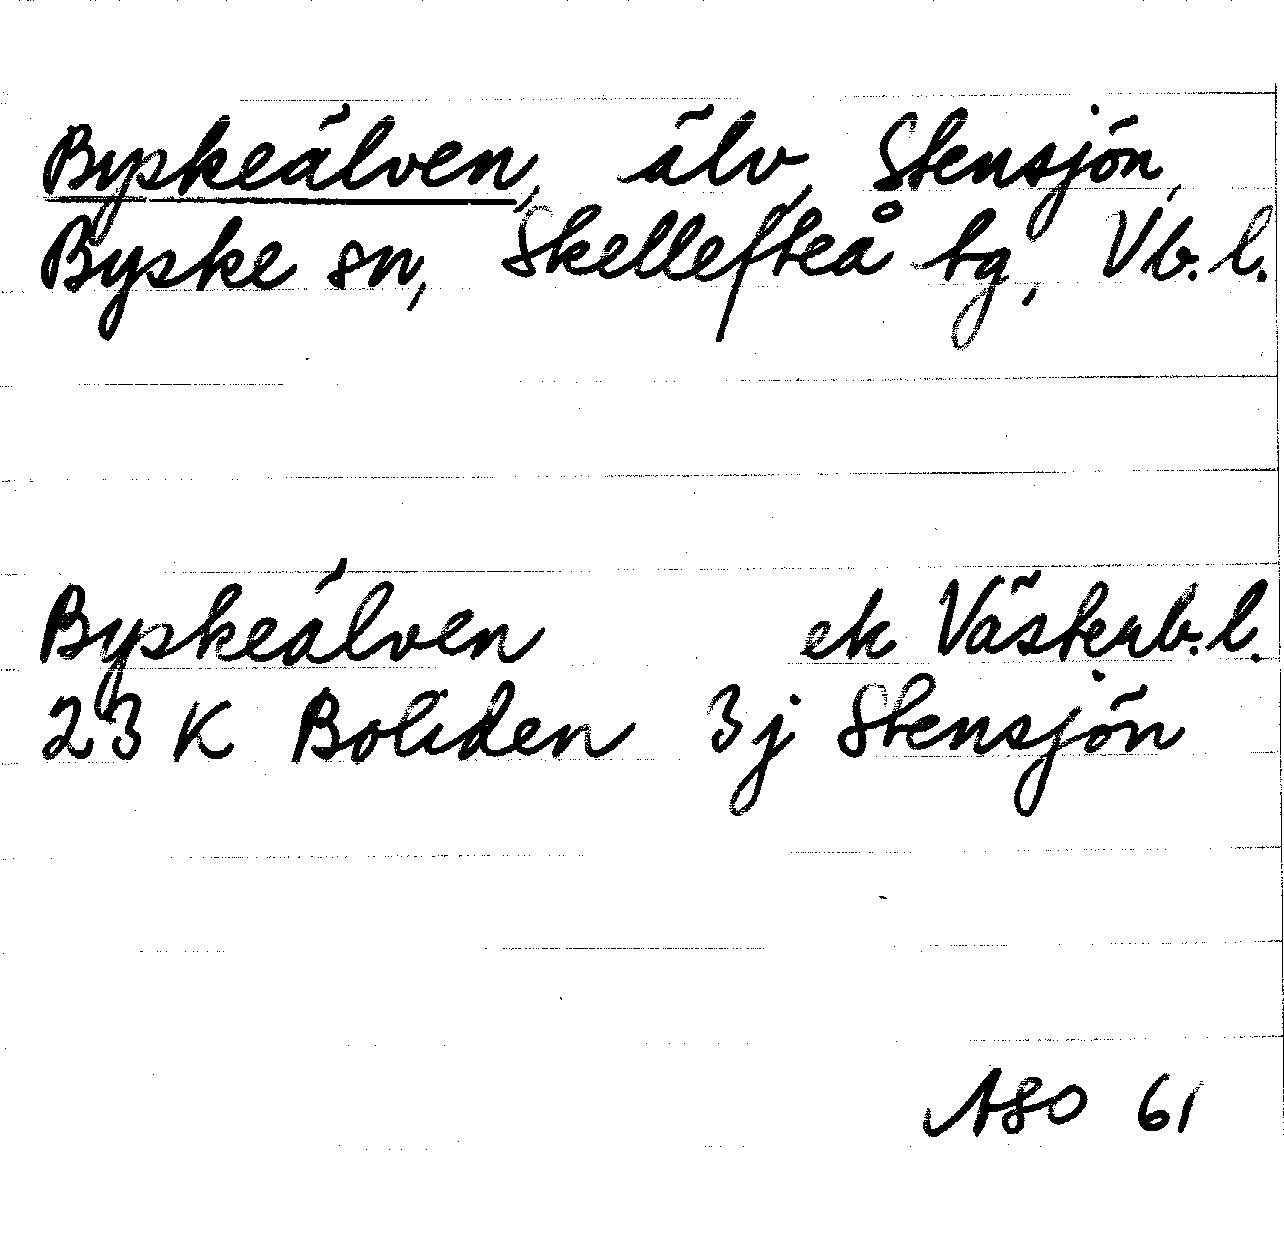 Byskeälven, älv, Stensjön,
Byske sn, Skellefteå tg, Vb. l.
Byskeälven ek Västerb. l.
23 K Boliden 3j Stensjön
ASO 61